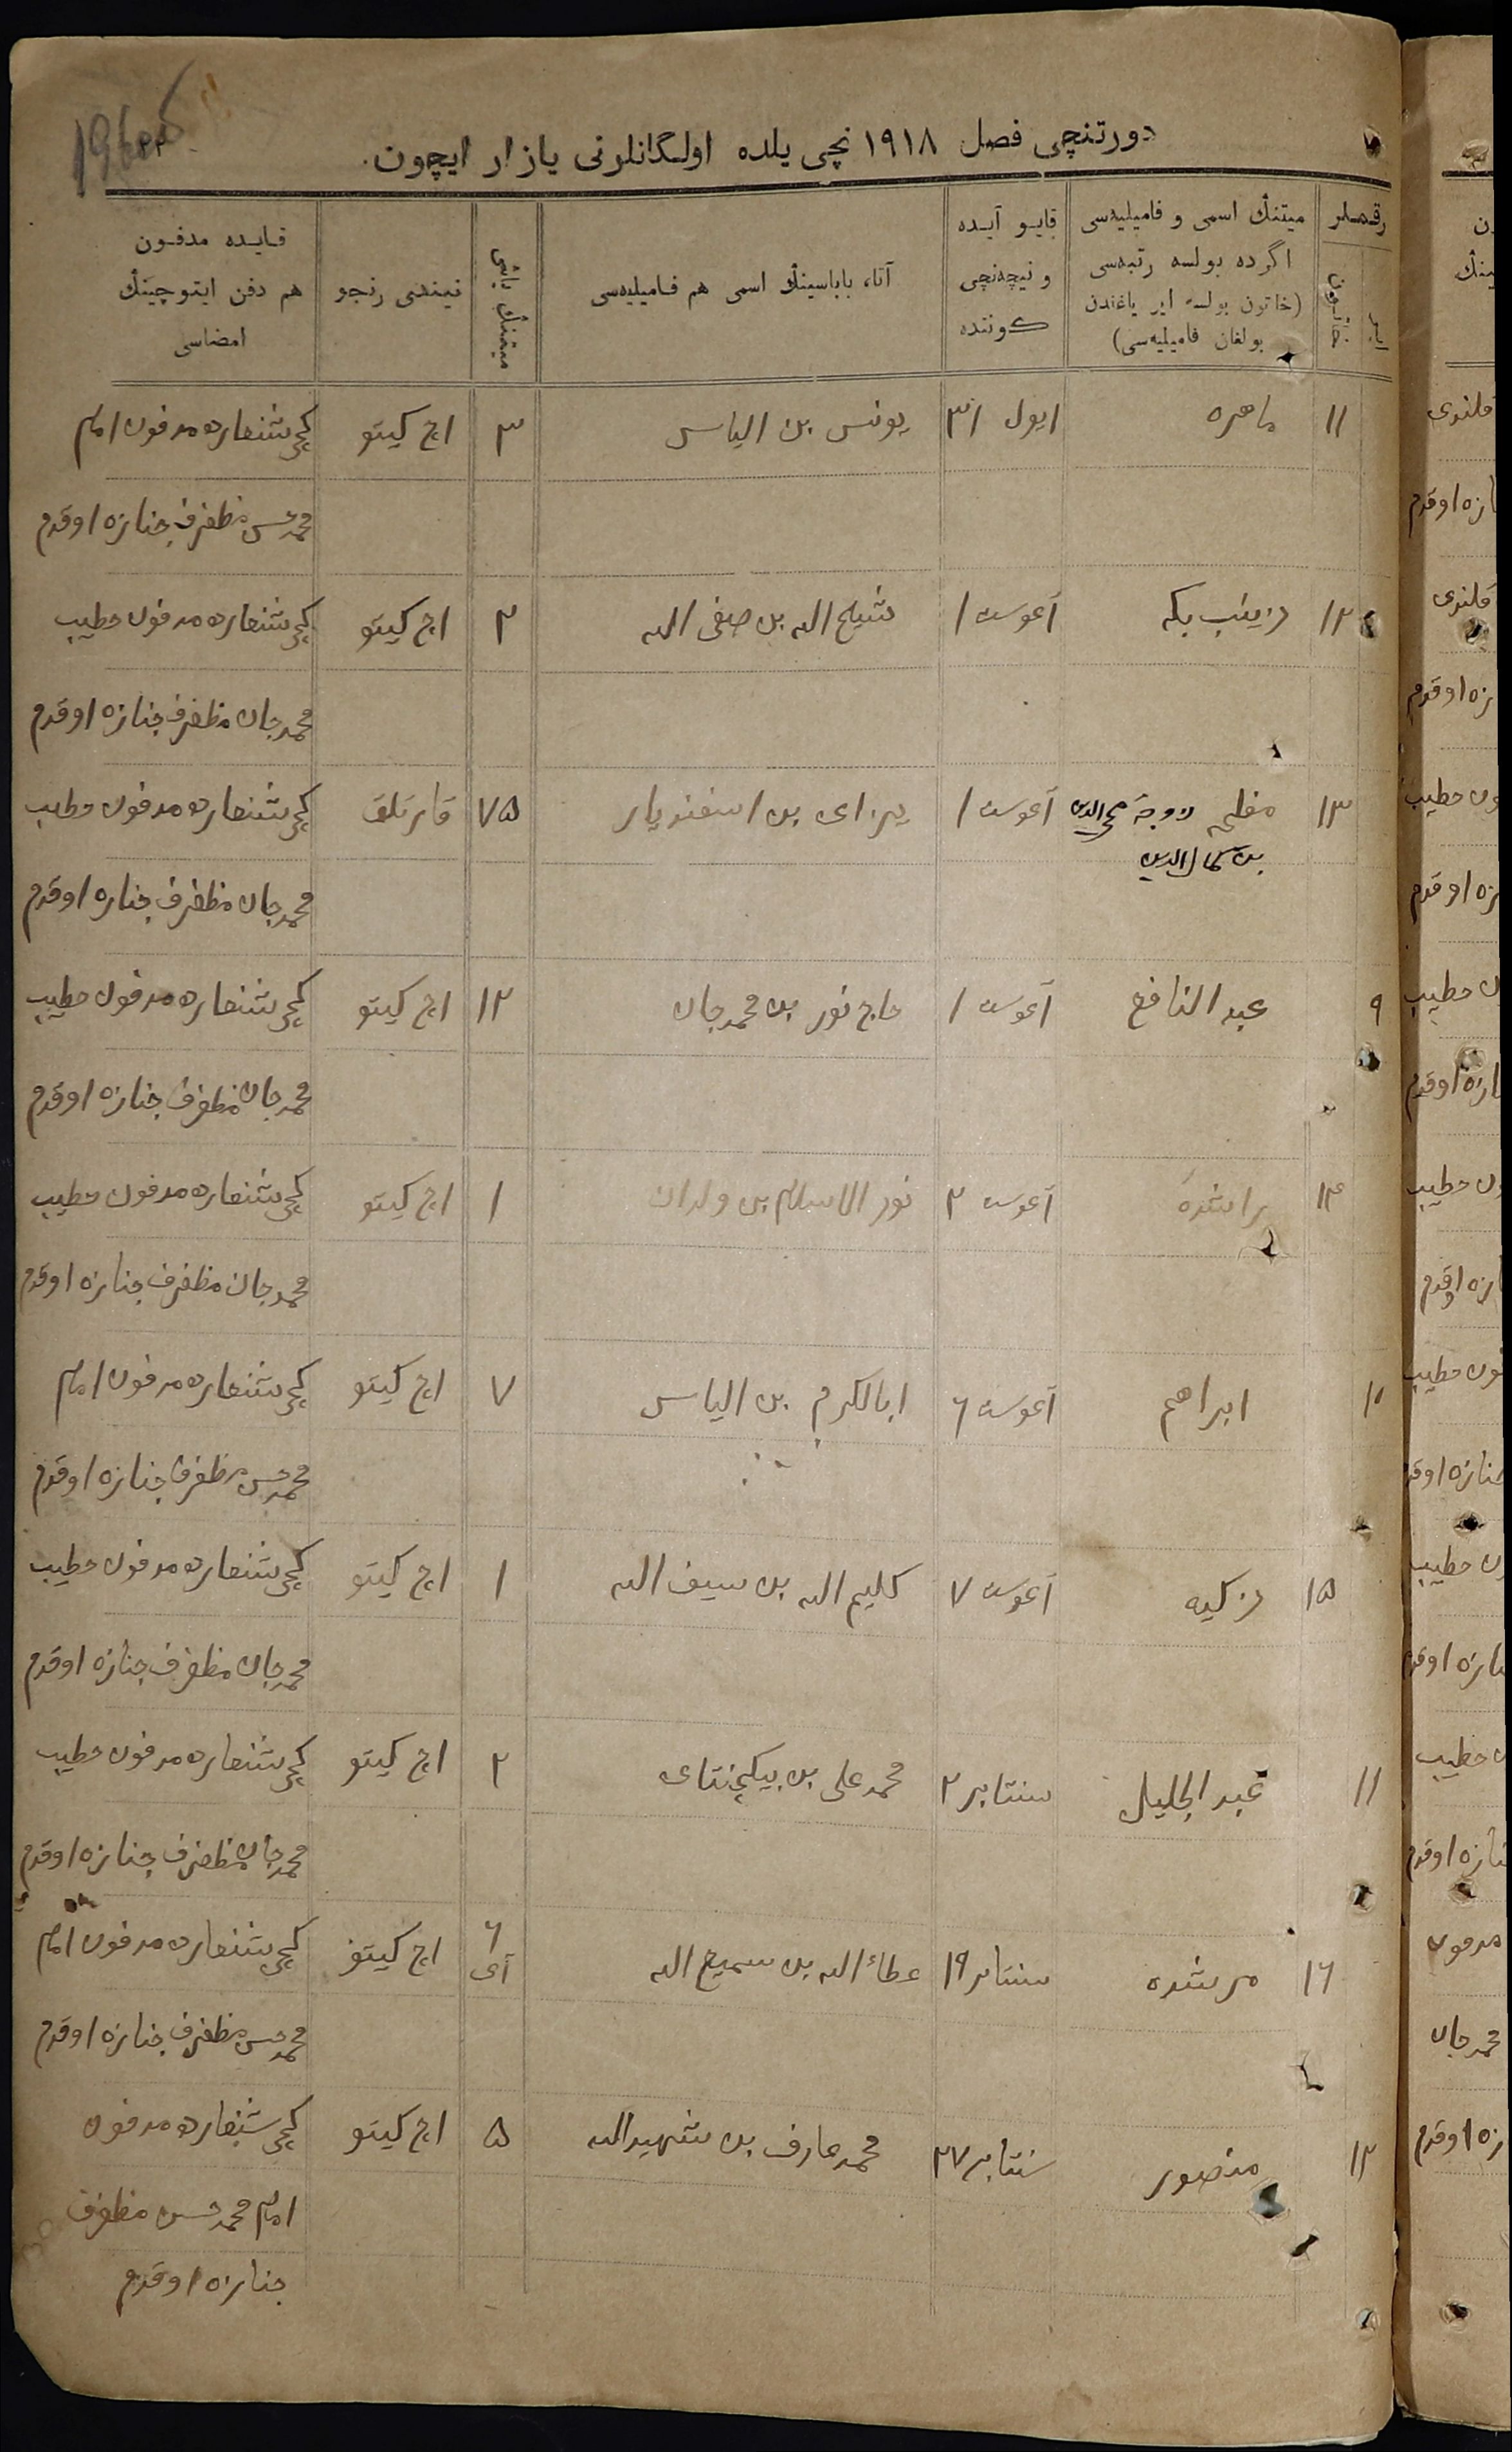 دورتنچی فصل ۱۹۱۸ نچی یلده اولگانلرنی یازار ایچون.
رقملر
میتنڭ اسمی و فامیلیه‌سی
اگرده بولسه رتبه‌سی
(خاتون بولسه ایر یاغندن
بولغان فامیلیه‌سی)
قایو آیده
و نیچه‌نچی
کوننده
آتا، باباسینڭ اسمی هم فامیلیه‌سی
میتنڭ یاشی
نیندی رنجو
قایده مدفون
هم دفن ایتوچینڭ
امضاسی
۱۱ ماهره ایول ۳۱ یونس بن الیاس ۳ اچ کیتو کچی شنغارده مدفون امام
محمد حسن مظفرف جنازه اوقدم
۱۲ زینب بکه آغوست ۱ شیخ الله بن صفی الله ۲ اچ کیتو کچی شنغارده مدفون خطیب
محمدجان مظفرف جنازه اوقدم
۱۳ مفلحه زوجة محی الدین آغوست ۱ بن اسفندیار ۷۵ قارتلق کچی شنغارده مدفون خطیب
بن کمال الدین
محمدجان مظفرف جنازه اوقدم
۹ عبد النافع آغوست ۱ حاج نور بن محمدجان ۱۲ اچ کیتو کچی شنغارده مدفون خطیب
محمدجان مظفرف جنازه اوقدم
۱۴ راشدة آغوست ۲ نور الاسلام بن ولدان ۱ اچ کیتو کچی شنغارده مدفون خطیب
محمدجان مظفرف جنازه اوقدم
۱۰ ابراهم آغوست ۶ ابالکرم بن الیاس ۷ اچ کیتو کچی شنغارده مدفون امام
محمد حسن مظفرف جنازه اوقدم
۱۵ زکیه آغوست ۷ کلیم الله بن سیف الله ۱ اچ کیتو کچی شنغارده مدفون خطیب
محمدجان مظفرف جنازه اوقدم
۱۱ عبد الجلیل سنتابر ۲ محمد علی بن بیکچنتای ۲ اچ کیتو کچی شنغارده مدفون خطیب
محمدجان مظفرف جنازه اوقدم
۱۶ مرشده سنتابر ۱۹ عطاء الله بن سمیع الله ۶ آی اچ کیتو کچی شنغارده مدفون امام
محمد حسن مظفرف جنازه اوقدم
۱۲ منصور سنتابر ۲۷ محمد عارف بن شهید الله ۵ اچ کیتو کچی شنغارده مدفون
امام محمد حسن مظفرف
جنازه اوقدم